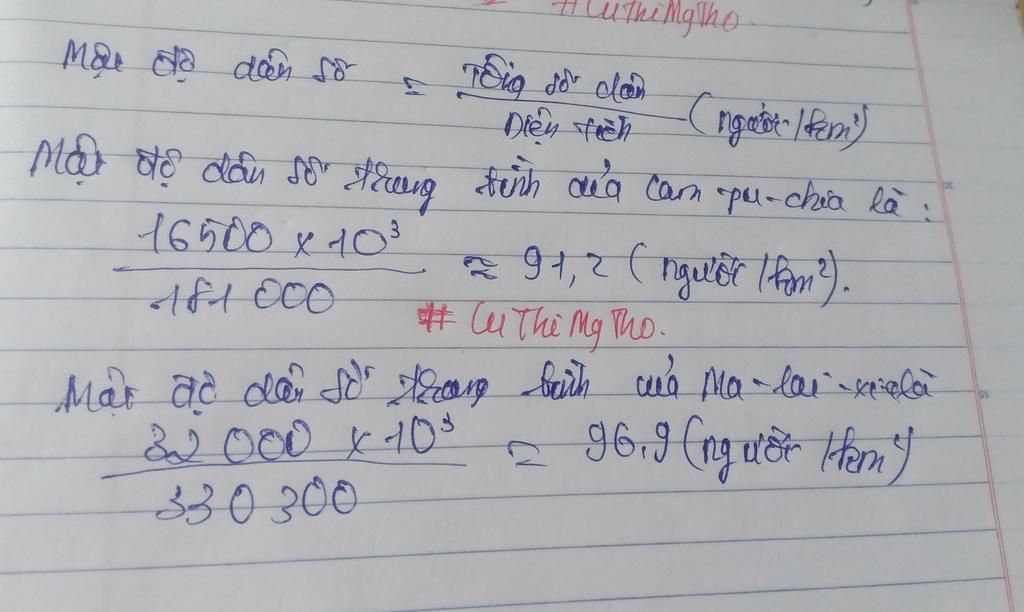 #CuThiMgTho.
Mật độ dân số = Tổng số dân / Diện tích (người/km²)
Mật độ dân số trung bình của Cam-pu-chia là:
16500 x 10³ / 181 000 ≈ 91,2 (người/km²).
# CuThiMgTho.
Mật độ dân số trung bình của Ma-lai-xi-a là
32 000 x 10³ / 330 300 = 96,9 (người/km²)